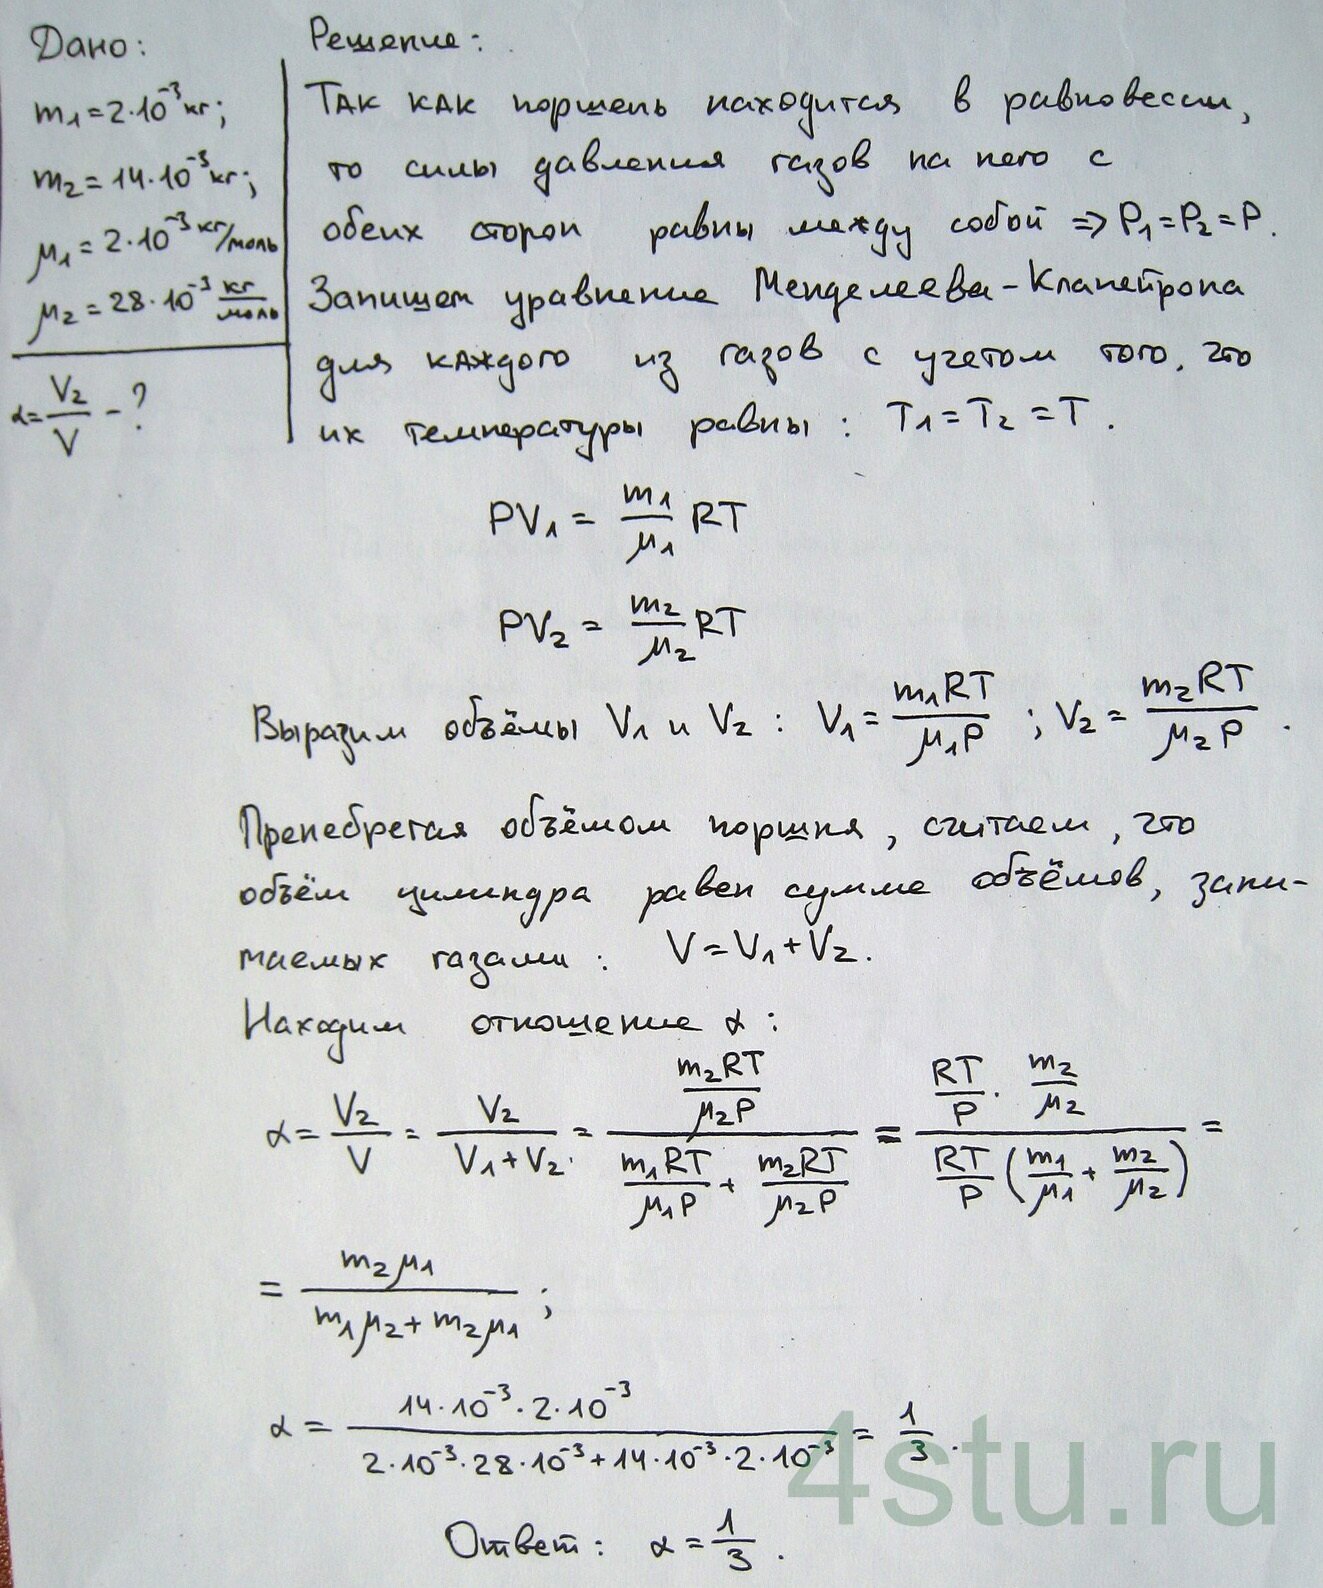 Дано:
m₁=2·10⁻³кг;
m₂=14·10⁻³кг;
μ₁=2·10⁻³кг/моль
μ₂=28·10⁻³ кг/моль
α=V₂/V - ?
Решение:
Так как поршень находится в равновессии,
то силы давления газов на него с
обеих сторон равны между собой ⇒ P₁=P₂=P.
Запишем уравнение Менделеева-Клапейрона
для каждого из газов с учетом того, что
их температуры равны: T₁=T₂=T.
PV₁ = m₁/μ₁ RT
PV₂ = m₂/μ₂ RT
Выразим объёмы V₁ и V₂: V₁ = m₁RT/μ₁P ; V₂ = m₂RT/μ₂P .
Пренебрегая объёмом поршня, считаем, что
объём цилиндра равен сумме объёмов, зани-
маемых газами: V=V₁+V₂.
Находим отношение α:
α = V₂/V = V₂/(V₁+V₂) = (m₂RT/μ₂P)/(m₁RT/μ₁P + m₂RT/μ₂P) = (RT/P · m₂/μ₂)/(RT/P (m₁/μ₁ + m₂/μ₂)) =
= m₂μ₁/(m₁μ₂+m₂μ₁) ;
α = (14·10⁻³·2·10⁻³)/(2·10⁻³·28·10⁻³+14·10⁻³·2·10⁻³) = 1/3.
Ответ: α = 1/3.
4stu.ru